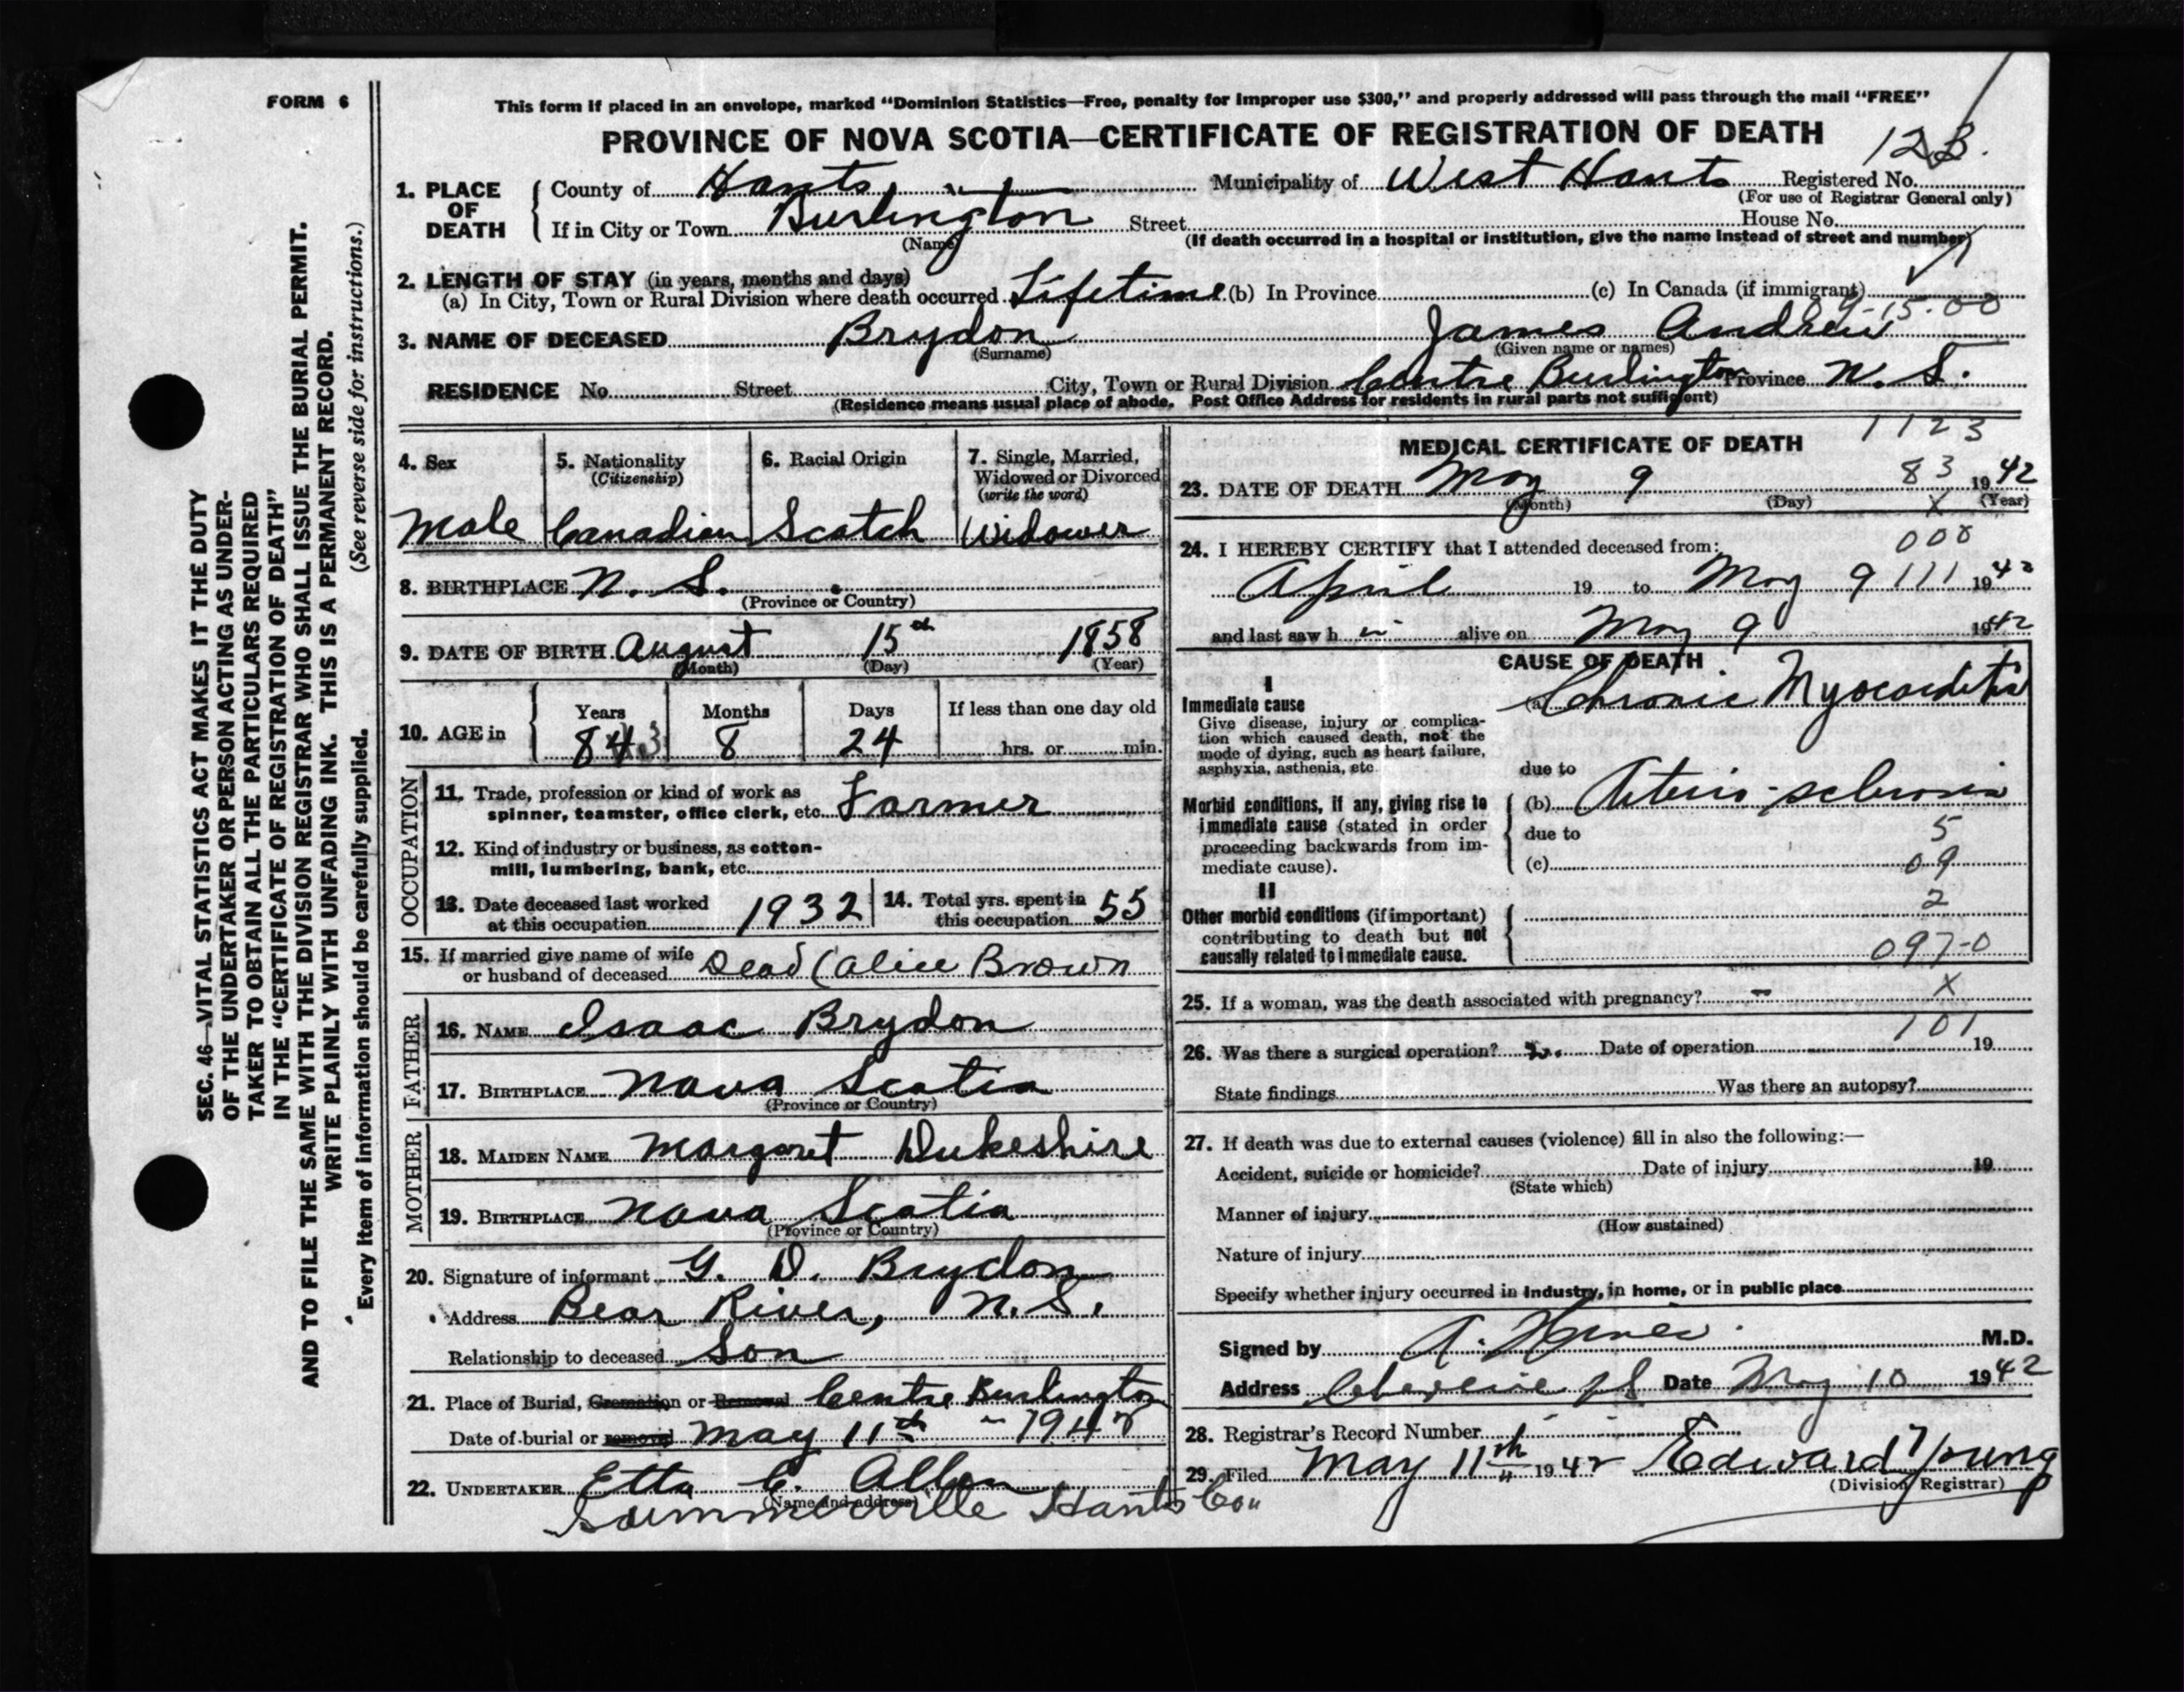 FORM 6
This form if placed in an envelope, marked "Dominion Statistics—Free, penalty for improper use $300," and properly addressed will pass through the mail "FREE"
PROVINCE OF NOVA SCOTIA—CERTIFICATE OF REGISTRATION OF DEATH
123.
1. PLACE OF DEATH
County of Hants Municipality of West Hants Registered No.
(For use of Registrar General only)
If in City or Town Burlington Street House No.
(Name) (If death occurred in a hospital or institution, give the name instead of street and number)
2. LENGTH OF STAY (in years, months and days)
(a) In City, Town or Rural Division where death occurred Lifetime (b) In Province (c) In Canada (if immigrant)
3. NAME OF DECEASED Brydon James Andrew
(Surname) (Given name or names)
RESIDENCE No. Street City, Town or Rural Division Centre Burlington Province N. S.
(Residence means usual place of abode. Post Office Address for residents in rural parts not sufficient)
4. Sex
Male
5. Nationality
(Citizenship)
Canadian
6. Racial Origin
Scotch
7. Single, Married,
Widowed or Divorced
(write the word)
Widower
8. BIRTHPLACE N. S.
(Province or Country)
9. DATE OF BIRTH August 15th 1858
(Month) (Day) (Year)
10. AGE in
Years Months Days If less than one day old
84 3 8 24 hrs. or min.
OCCUPATION
11. Trade, profession or kind of work as
spinner, teamster, office clerk, etc. Farmer
12. Kind of industry or business, as cotton-
mill, lumbering, bank, etc.
13. Date deceased last worked
at this occupation 1932
14. Total yrs. spent in
this occupation 55
15. If married give name of wife
or husband of deceased Dead (Alice Brown
FATHER
16. NAME Isaac Brydon
17. BIRTHPLACE Nova Scotia
(Province or Country)
MOTHER
18. MAIDEN NAME Margaret Dukeshire
19. BIRTHPLACE Nova Scotia
(Province or Country)
20. Signature of informant G. D. Brydon
Address Bear River, N.S.
Relationship to deceased Son
21. Place of Burial, Cremation or Removal Centre Burlington
Date of burial or removal May 11th - 1942
22. UNDERTAKER Etta C. Allen
(Name and address)
Summerville Hants Cou
MEDICAL CERTIFICATE OF DEATH
1123
23. DATE OF DEATH May 9 83 1942
(Month) (Day) X (Year)
24. I HEREBY CERTIFY that I attended deceased from:
000
April 19 to May 9 111 1942
and last saw h im alive on May 9 1942
CAUSE OF DEATH
I
Immediate cause
Give disease, injury or complica-
tion which caused death, not the
mode of dying, such as heart failure,
asphyxia, asthenia, etc.
(a) Chronic Myocarditis
due to
Morbid conditions, if any, giving rise to
immediate cause (stated in order
proceeding backwards from im-
mediate cause).
(b) Arterio-sclerosis
due to 5
(c) 09
II
2
Other morbid conditions (if important)
contributing to death but not
causally related to immediate cause.
097-0
25. If a woman, was the death associated with pregnancy? - X
101
26. Was there a surgical operation? Date of operation 19
State findings Was there an autopsy?
27. If death was due to external causes (violence) fill in also the following:—
Accident, suicide or homicide? Date of injury 19
(State which)
Manner of injury
(How sustained)
Nature of injury
Specify whether injury occurred in industry, in home, or in public place
Signed by M.D.
Address Date May 10 1942
28. Registrar's Record Number
29. Filed May 11th 1942 Edward Young
(Division Registrar)
SEC. 46—VITAL STATISTICS ACT MAKES IT THE DUTY
OF THE UNDERTAKER OR PERSON ACTING AS UNDER-
TAKER TO OBTAIN ALL THE PARTICULARS REQUIRED
IN THE "CERTIFICATE OF REGISTRATION OF DEATH"
AND TO FILE THE SAME WITH THE DIVISION REGISTRAR WHO SHALL ISSUE THE BURIAL PERMIT.
WRITE PLAINLY WITH UNFADING INK. THIS IS A PERMANENT RECORD.
Every item of information should be carefully supplied. (See reverse side for instructions.)